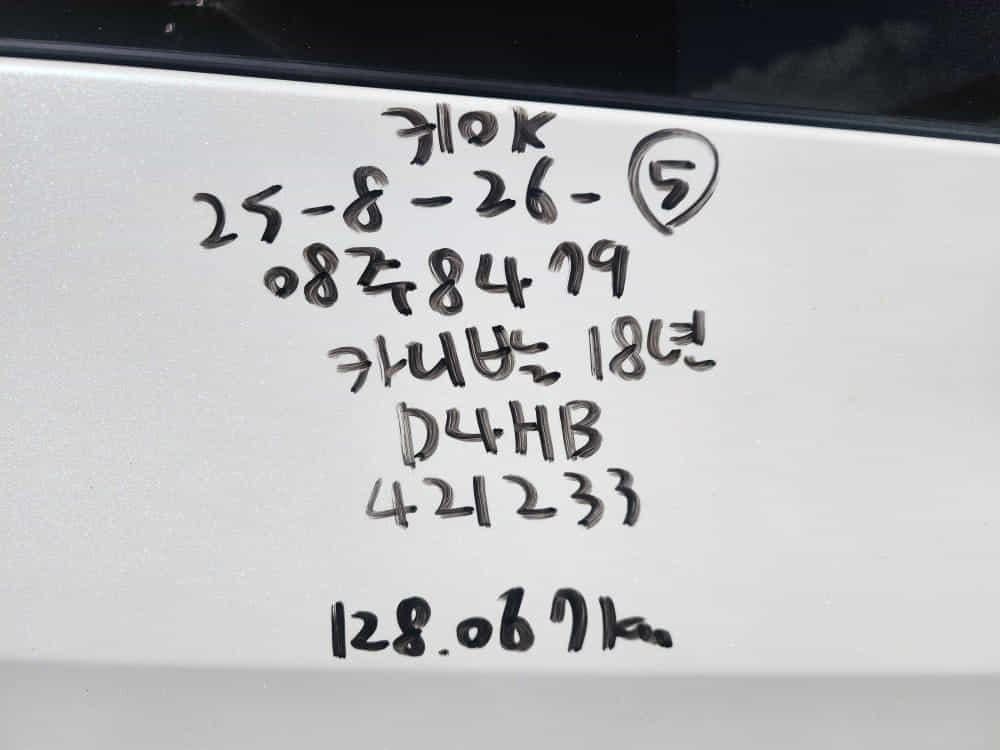 키OK
25-8-26-⑤
08주8479
카니발 18년
D4HB
421233
128.067km